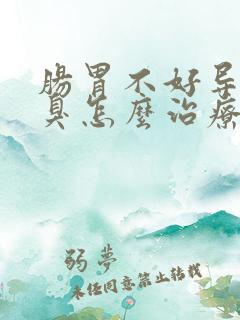 腸胃不好导
臭怎麼治療
弱夢
未经同意禁止转载